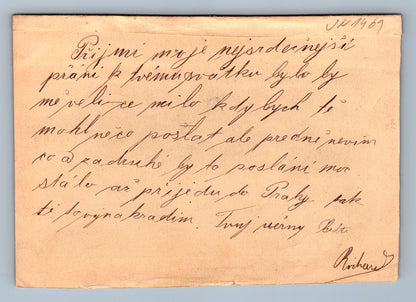 VN 1469
Přijmi moje nejsrdečnější
přání k tvému svátku bylo by
mě velice milo kdybych tě
mohl neco poslat ale předně nevim
co a zadruhé by to poslání moc
stálo až přijedu do Prahy tak
ti to vynakradim. Tvuj věrny
Richard